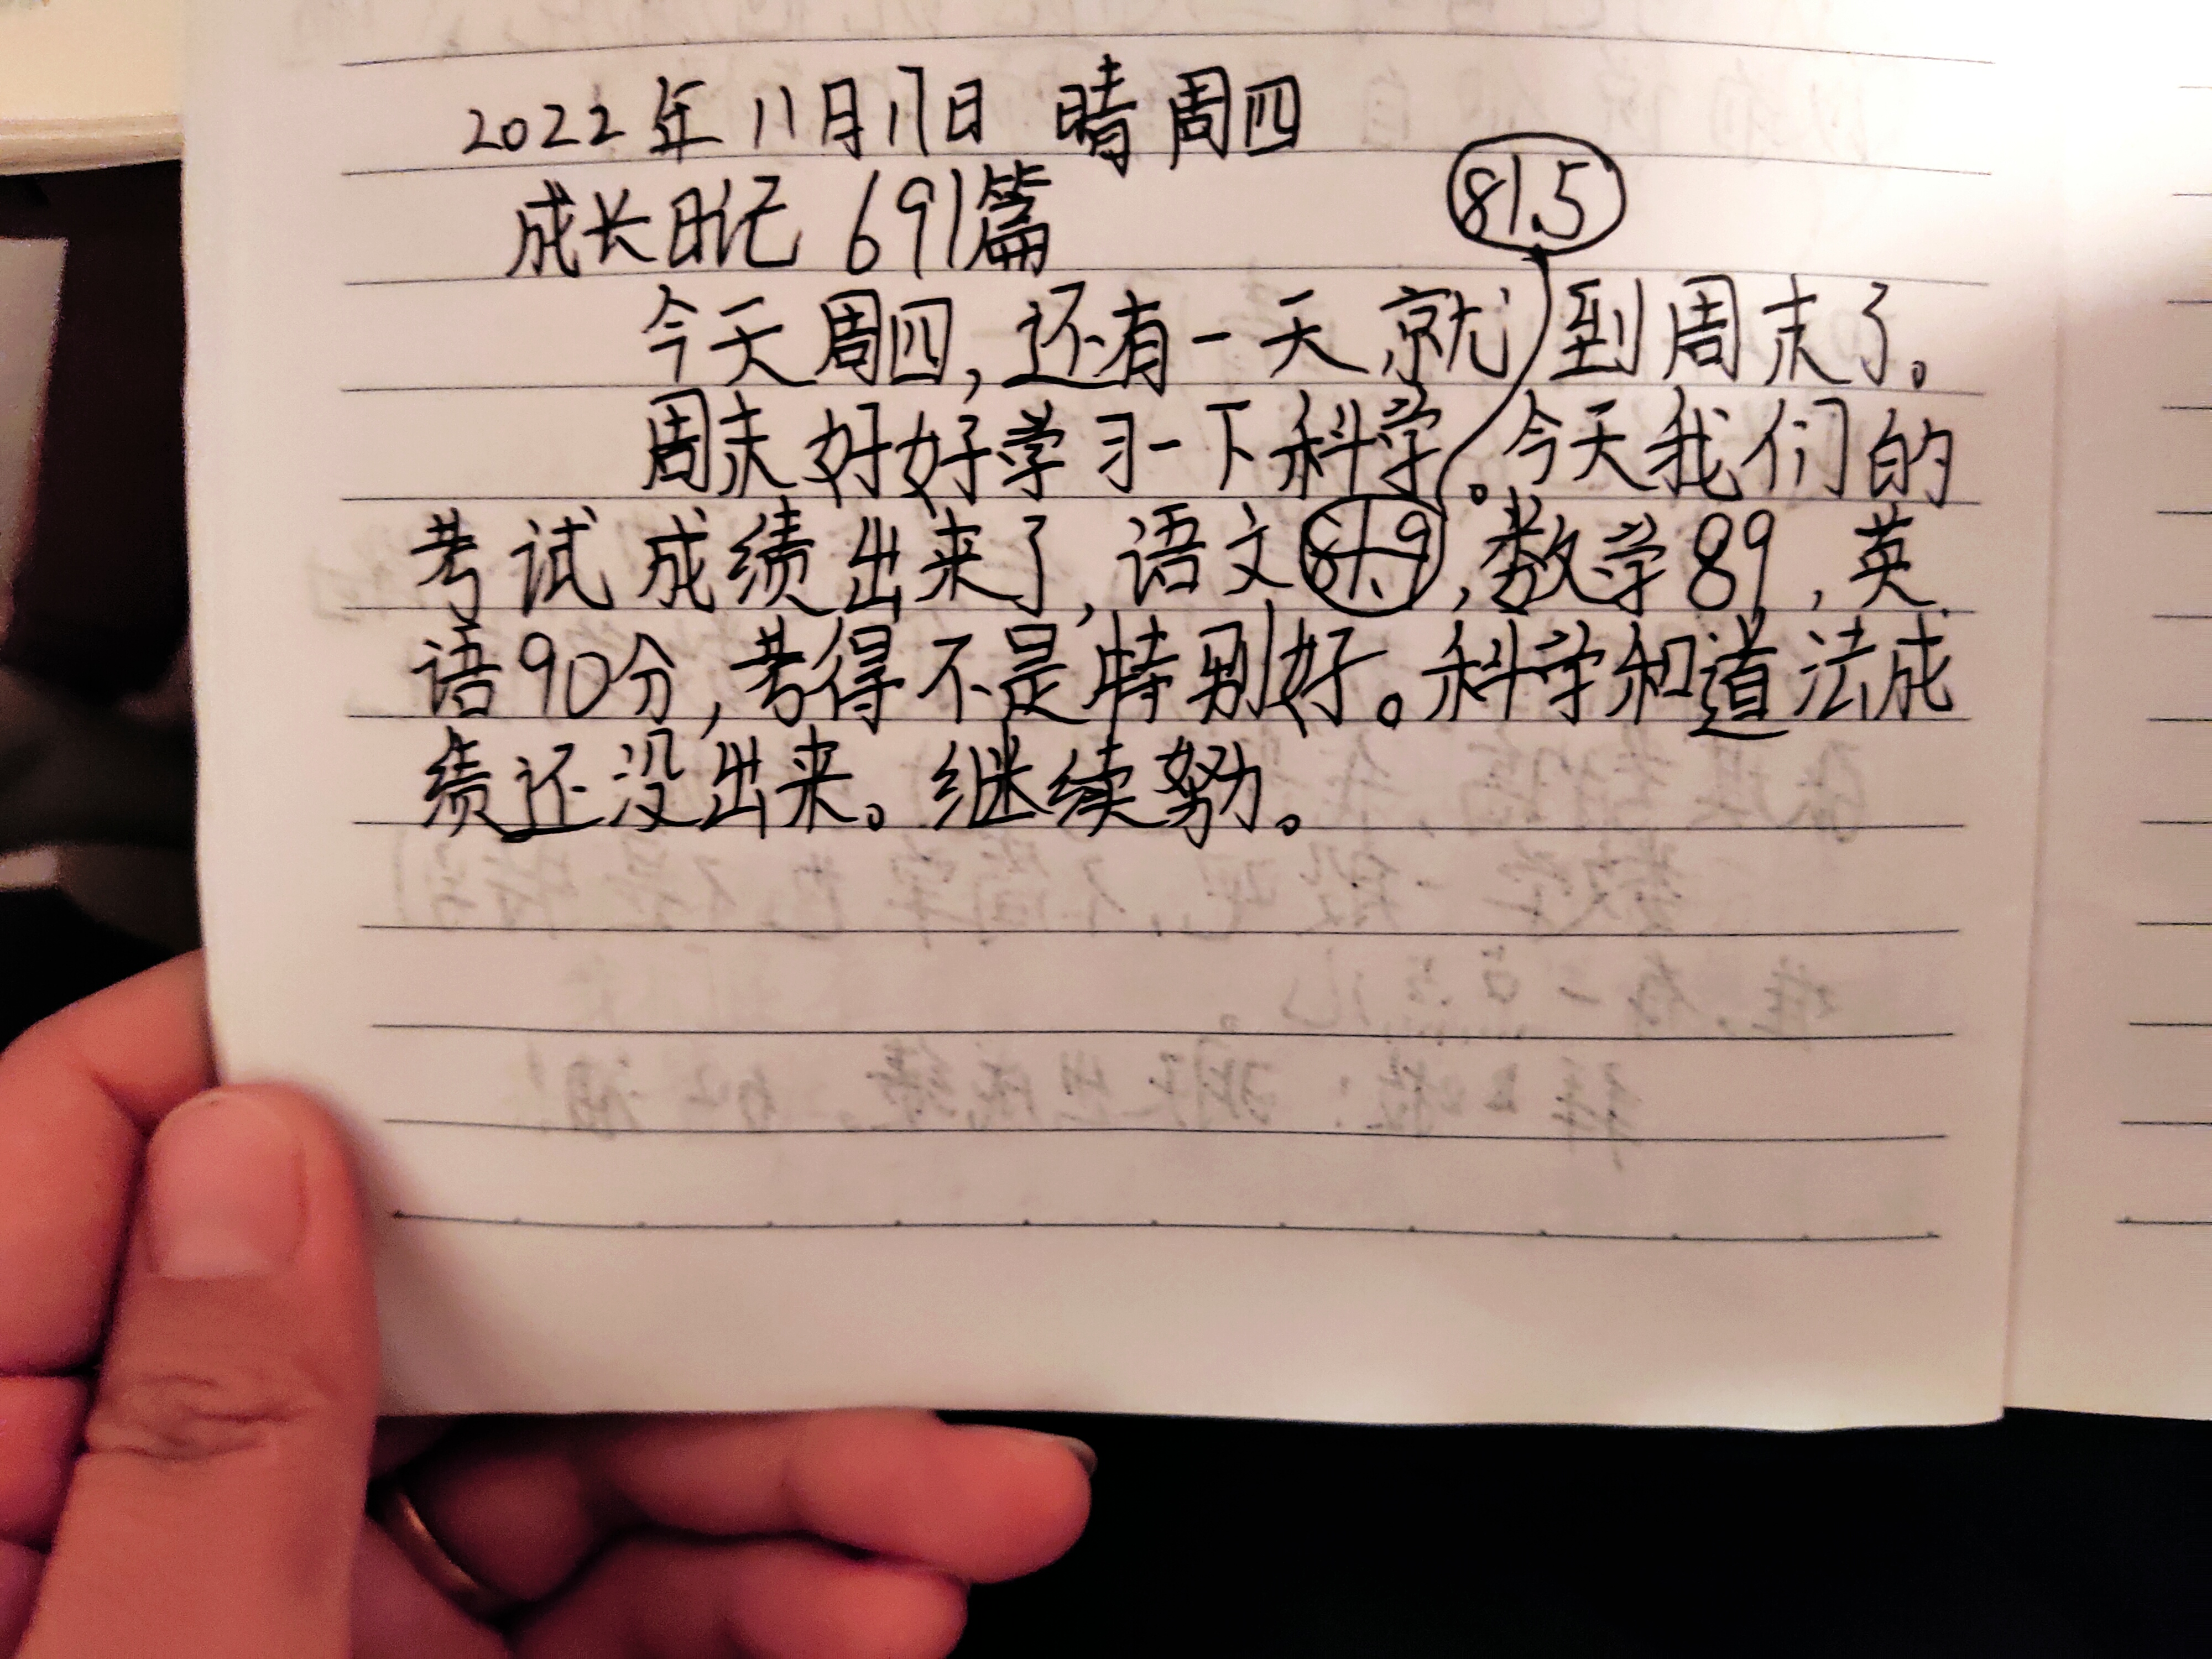 2022年11月17日 晴 周四
成长日记 691篇
81.5
今天周四,还有一天就到周末了。
周末好好学习一下科学。今天我们的
考试成绩出来了,语文,数学89,英
语90分,考得不是特别好。科学和道法成
绩还没出来。继续努。